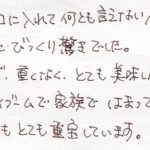 口に入れて何とも言えない
びっくり驚きでした。
重くなく、とても美味し
ブームで家族ではまって
もとても重宝しています。